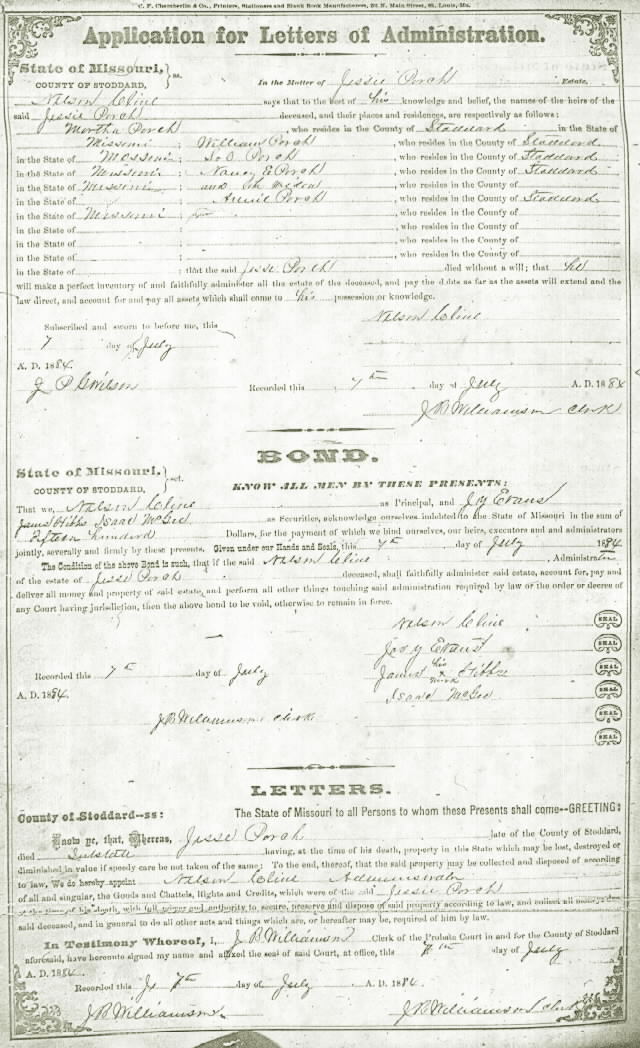 C. F. Chamberlin & Co., Printers, Stationers and Blank Book Manufacturers, N. Main Street, St. Louis, Mo.
Application for Letters of Administration.
State of Missouri, } ss.
COUNTY OF STODDARD,
In the Matter of Jessie Porch Estate.
Nelson Cline says that to the best of his knowledge and belief, the names of the heirs of the
said Jessie Porch deceased, and their places and residences, are respectively as follows:
Martha Porch, who resides in the County of Stoddard in the State of
Missouri; William Porch, who resides in the County of Stoddard
in the State of Missouri; Porch, who resides in the County of Stoddard
in the State of Missouri; Nancy E Porch, who resides in the County of Stoddard
in the State of Missouri and the widow
in the State of ; Annie Porch, who resides in the County of Stoddard
in the State of Missouri ; , who resides in the County of
in the State of ; , who resides in the County of
in the State of ; , who resides in the County of
in the State of ; that the said Jesse Porch died without a will; that he
will make a perfect inventory of and faithfully administer all the estate of the deceased, and pay the debts as far as the assets will extend and the
law direct, and account for and pay all assets which shall come to his possession or knowledge.
Nelson Cline
Subscribed and sworn to before me, this
7 day of July
A. D. 1884.
J P Wilson
Recorded this 7th day of July A. D. 1884
J B Williamson Clerk
BOND.
State of Missouri, } sct.
COUNTY OF STODDARD,
KNOW ALL MEN BY THESE PRESENTS:
That we, Nelson Cline as Principal, and J Y Evans
James Hibbs Isaac McGee as Securities, acknowledge ourselves indebted to the State of Missouri in the sum of
Fifteen hundred Dollars, for the payment of which we bind ourselves, our heirs, executors and administrators
jointly, severally and firmly by these presents. Given under our Hands and Seals, this 7th day of July 1884
The Condition of the above Bond is such, that if the said Nelson Cline, Administrator
of the estate of Jesse Porch deceased, shall faithfully administer said estate, account for, pay and
deliver all money and property of said estate, and perform all other things touching said administration required by law or the order or decree of
any Court having jurisdiction, then the above bond to be void, otherwise to remain in force.
Nelson Cline SEAL
Evans SEAL
Recorded this 7th day of July James his x mark Hibbs SEAL
A. D. 1884. Isaac McGee SEAL
J B Williamson Clerk SEAL
SEAL
LETTERS.
County of Stoddard--ss: The State of Missouri to all Persons to whom these Presents shall come--GREETING:
Know ye, that, Whereas, Jesse Porch late of the County of Stoddard,
died Intestate having, at the time of his death, property in this State which may be lost, destroyed or
diminished in value if speedy care be not taken of the same: To the end, therefor, that the said property may be collected and disposed of according
to law, We do hereby appoint Nelson Cline Administrator
of all and singular, the Goods and Chattels, Rights and Credits, which were of the said Jessie Porch
at the time of his death, with full power and authority to secure, preserve and dispose of said property according to law, and collect all moneys due
said deceased, and in general to do all other acts and things which are, or hereafter may be, required of him by law.
In Testimony Whereof, I, J B Williamson Clerk of the Probate Court in and for the County of Stoddard
aforesaid, have hereunto signed my name and affixed the seal of said Court, at office, this 7th day of July
A. D. 1884.
Recorded this 7th day of July A. D. 1884.
J B Williamson J B Williamson Clerk